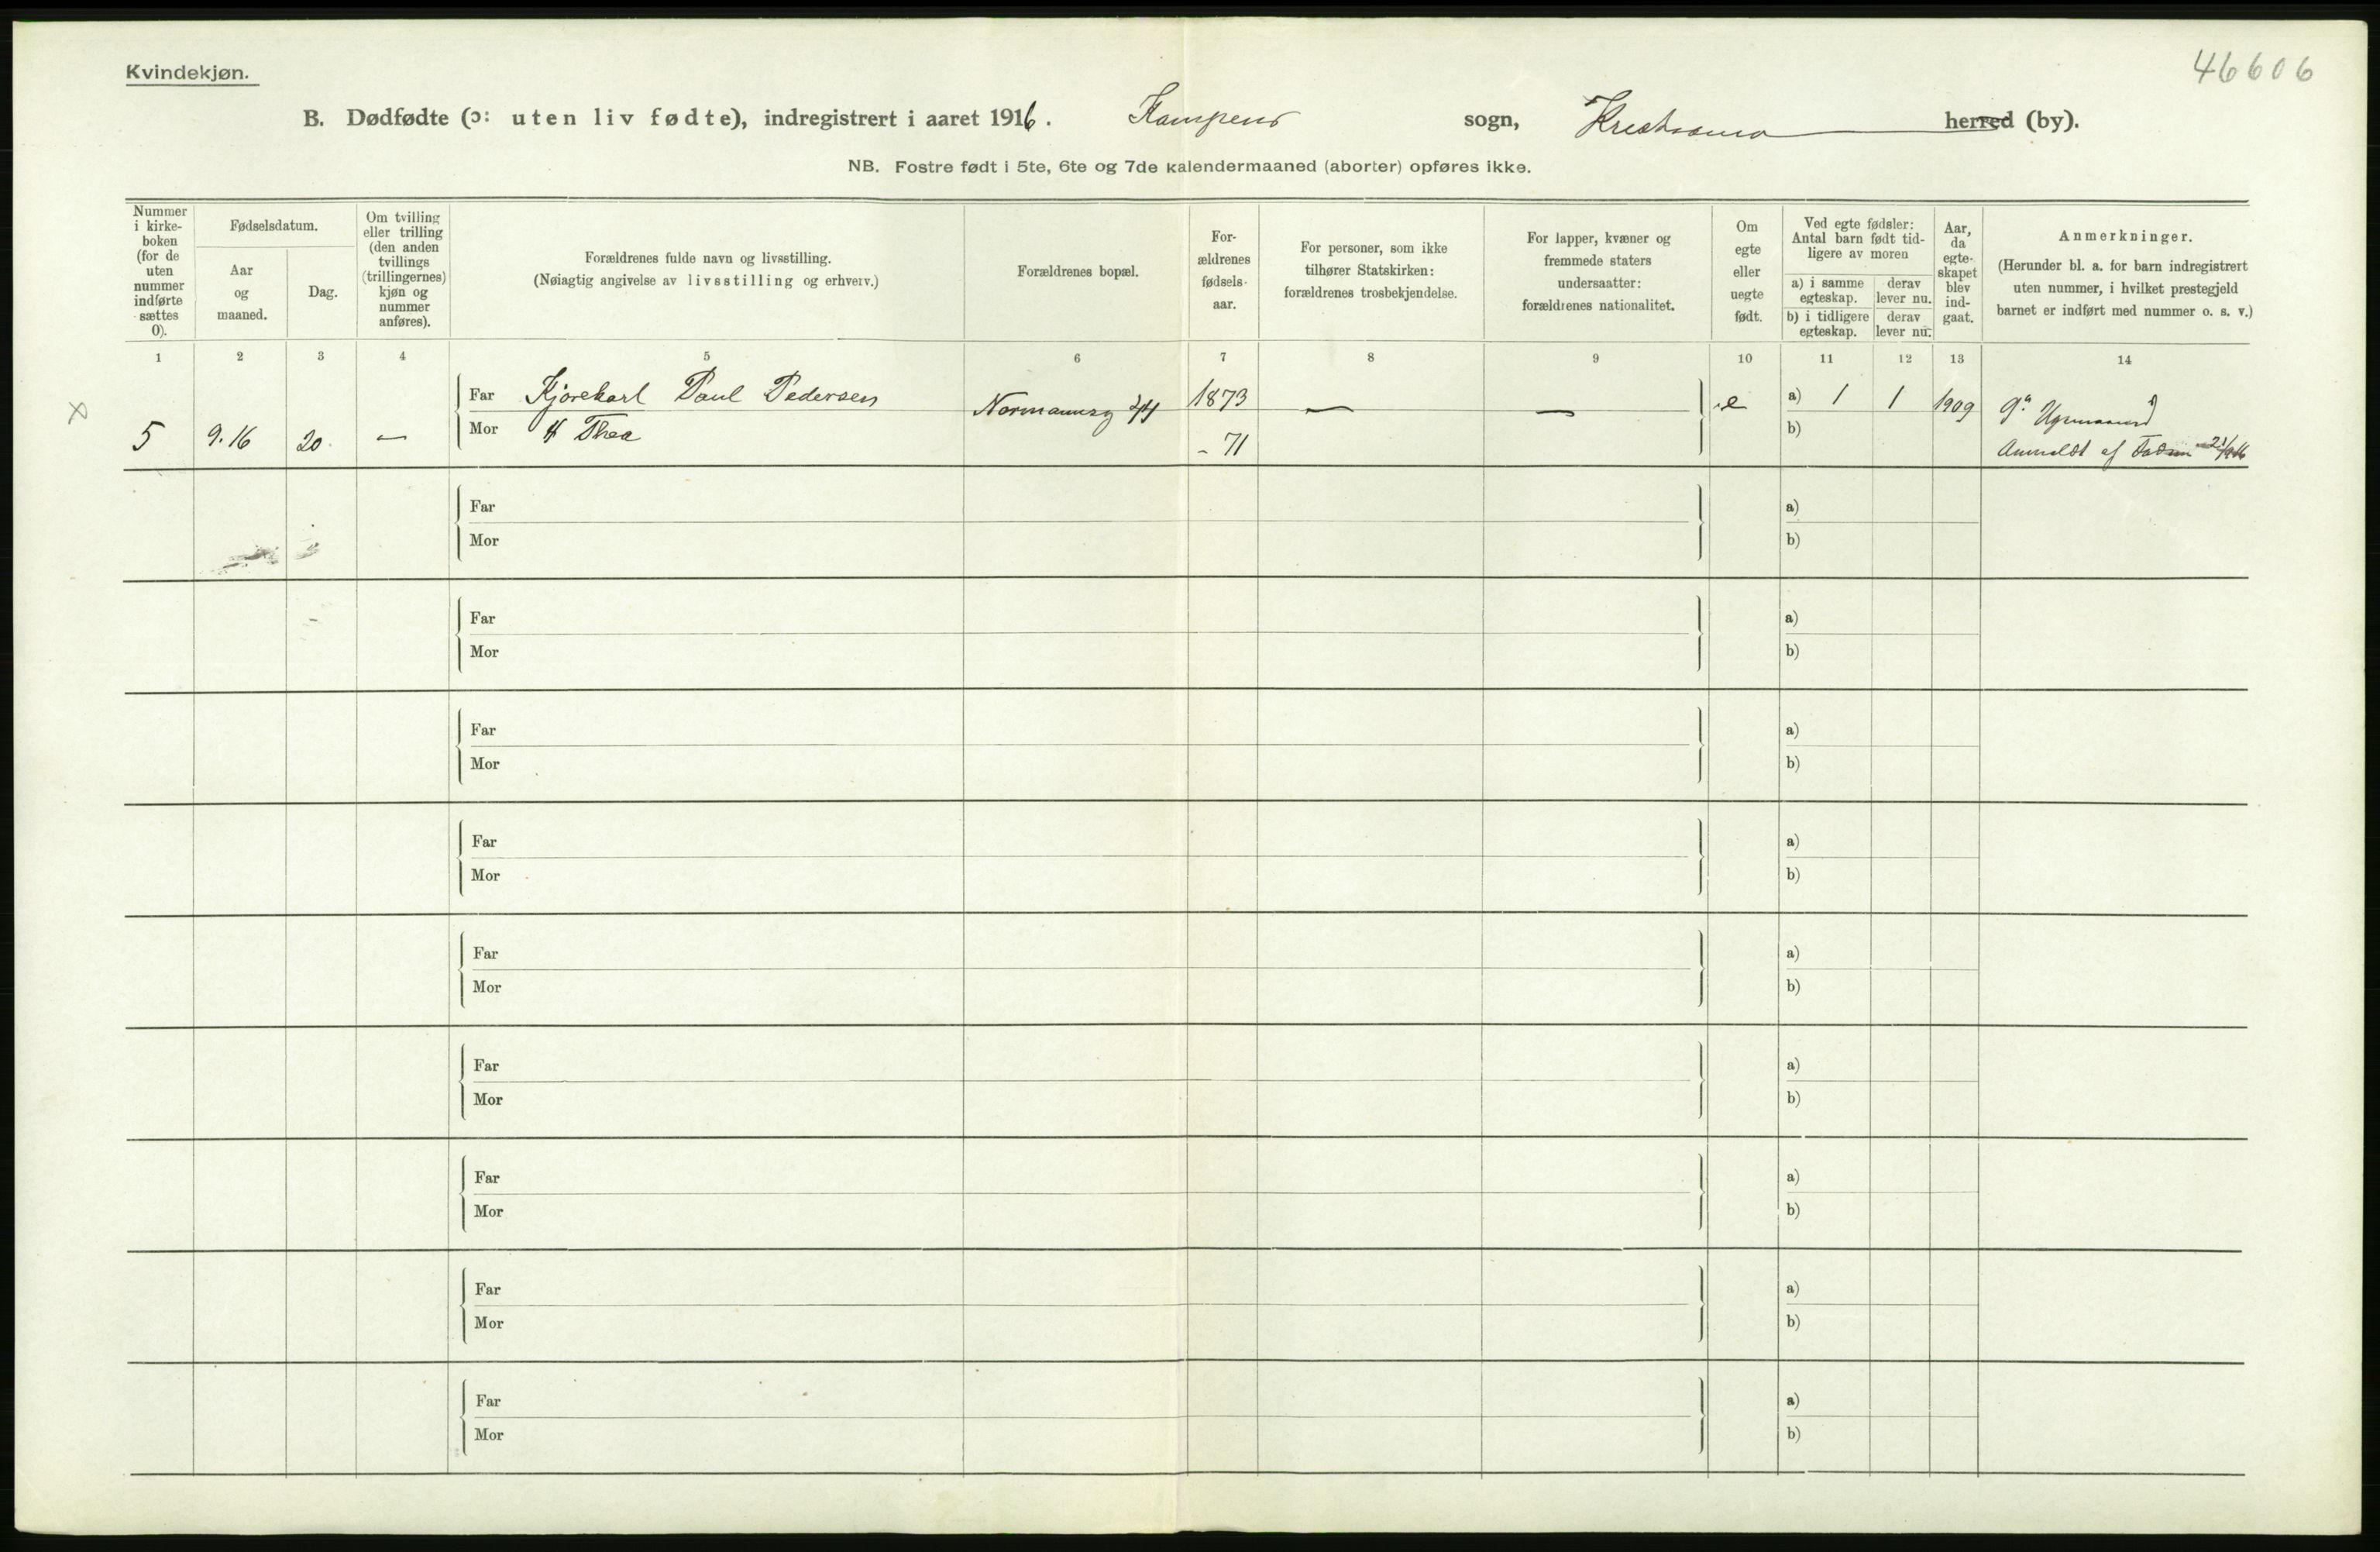 46606
Kvindekjøn.
B. Dødfødte (ɔ: uten liv fødte), indregistrert i aaret 1916. Kampens sogn, Kristiania herred (by).
NB. Fostre født i 5te, 6te og 7de kalendermaaned (aborter) opføres ikke.
Nummer i kirke-boken (for de uten nummer indførte sættes 0).
Fødselsdatum.
Aar og maaned.
Dag.
Om tvilling eller trilling (den anden tvillings (trillingernes) kjøn og nummer anføres).
Forældrenes fulde navn og livsstilling.
(Nøiagtig angivelse av livsstilling og erhverv.)
Forældrenes bopæl.
For-ældrenes fødsels-aar.
For personer, som ikke tilhører Statskirken: forældrenes trosbekjendelse.
For lapper, kvæner og fremmede staters undersaatter: forældrenes nationalitet.
Om egte eller uegte født.
Ved egte fødsler: Antal barn født tid-ligere av moren
a) i samme egteskap. derav lever nu.
b) i tidligere egteskap. derav lever nu.
Aar, da egte-skapet blev ind-gaat.
Anmerkninger.
(Herunder bl. a. for barn indregistrert uten nummer, i hvilket prestegjeld barnet er indført med nummer o. s. v.)
1 2 3 4 5 6 7 8 9 10 11 12 13 14
x
Far Kjørekarl Paul Pedersen Normannsg 44 1873 — — e a) 1 1 1909
5 9.16 20. — Mor H Thea - 71 b)
Anmeldt af Faderen 21/9 16
Far a)
Mor b)
Far a)
Mor b)
Far a)
Mor b)
Far a)
Mor b)
Far a)
Mor b)
Far a)
Mor b)
Far a)
Mor b)
Far a)
Mor b)
Far a)
Mor b)